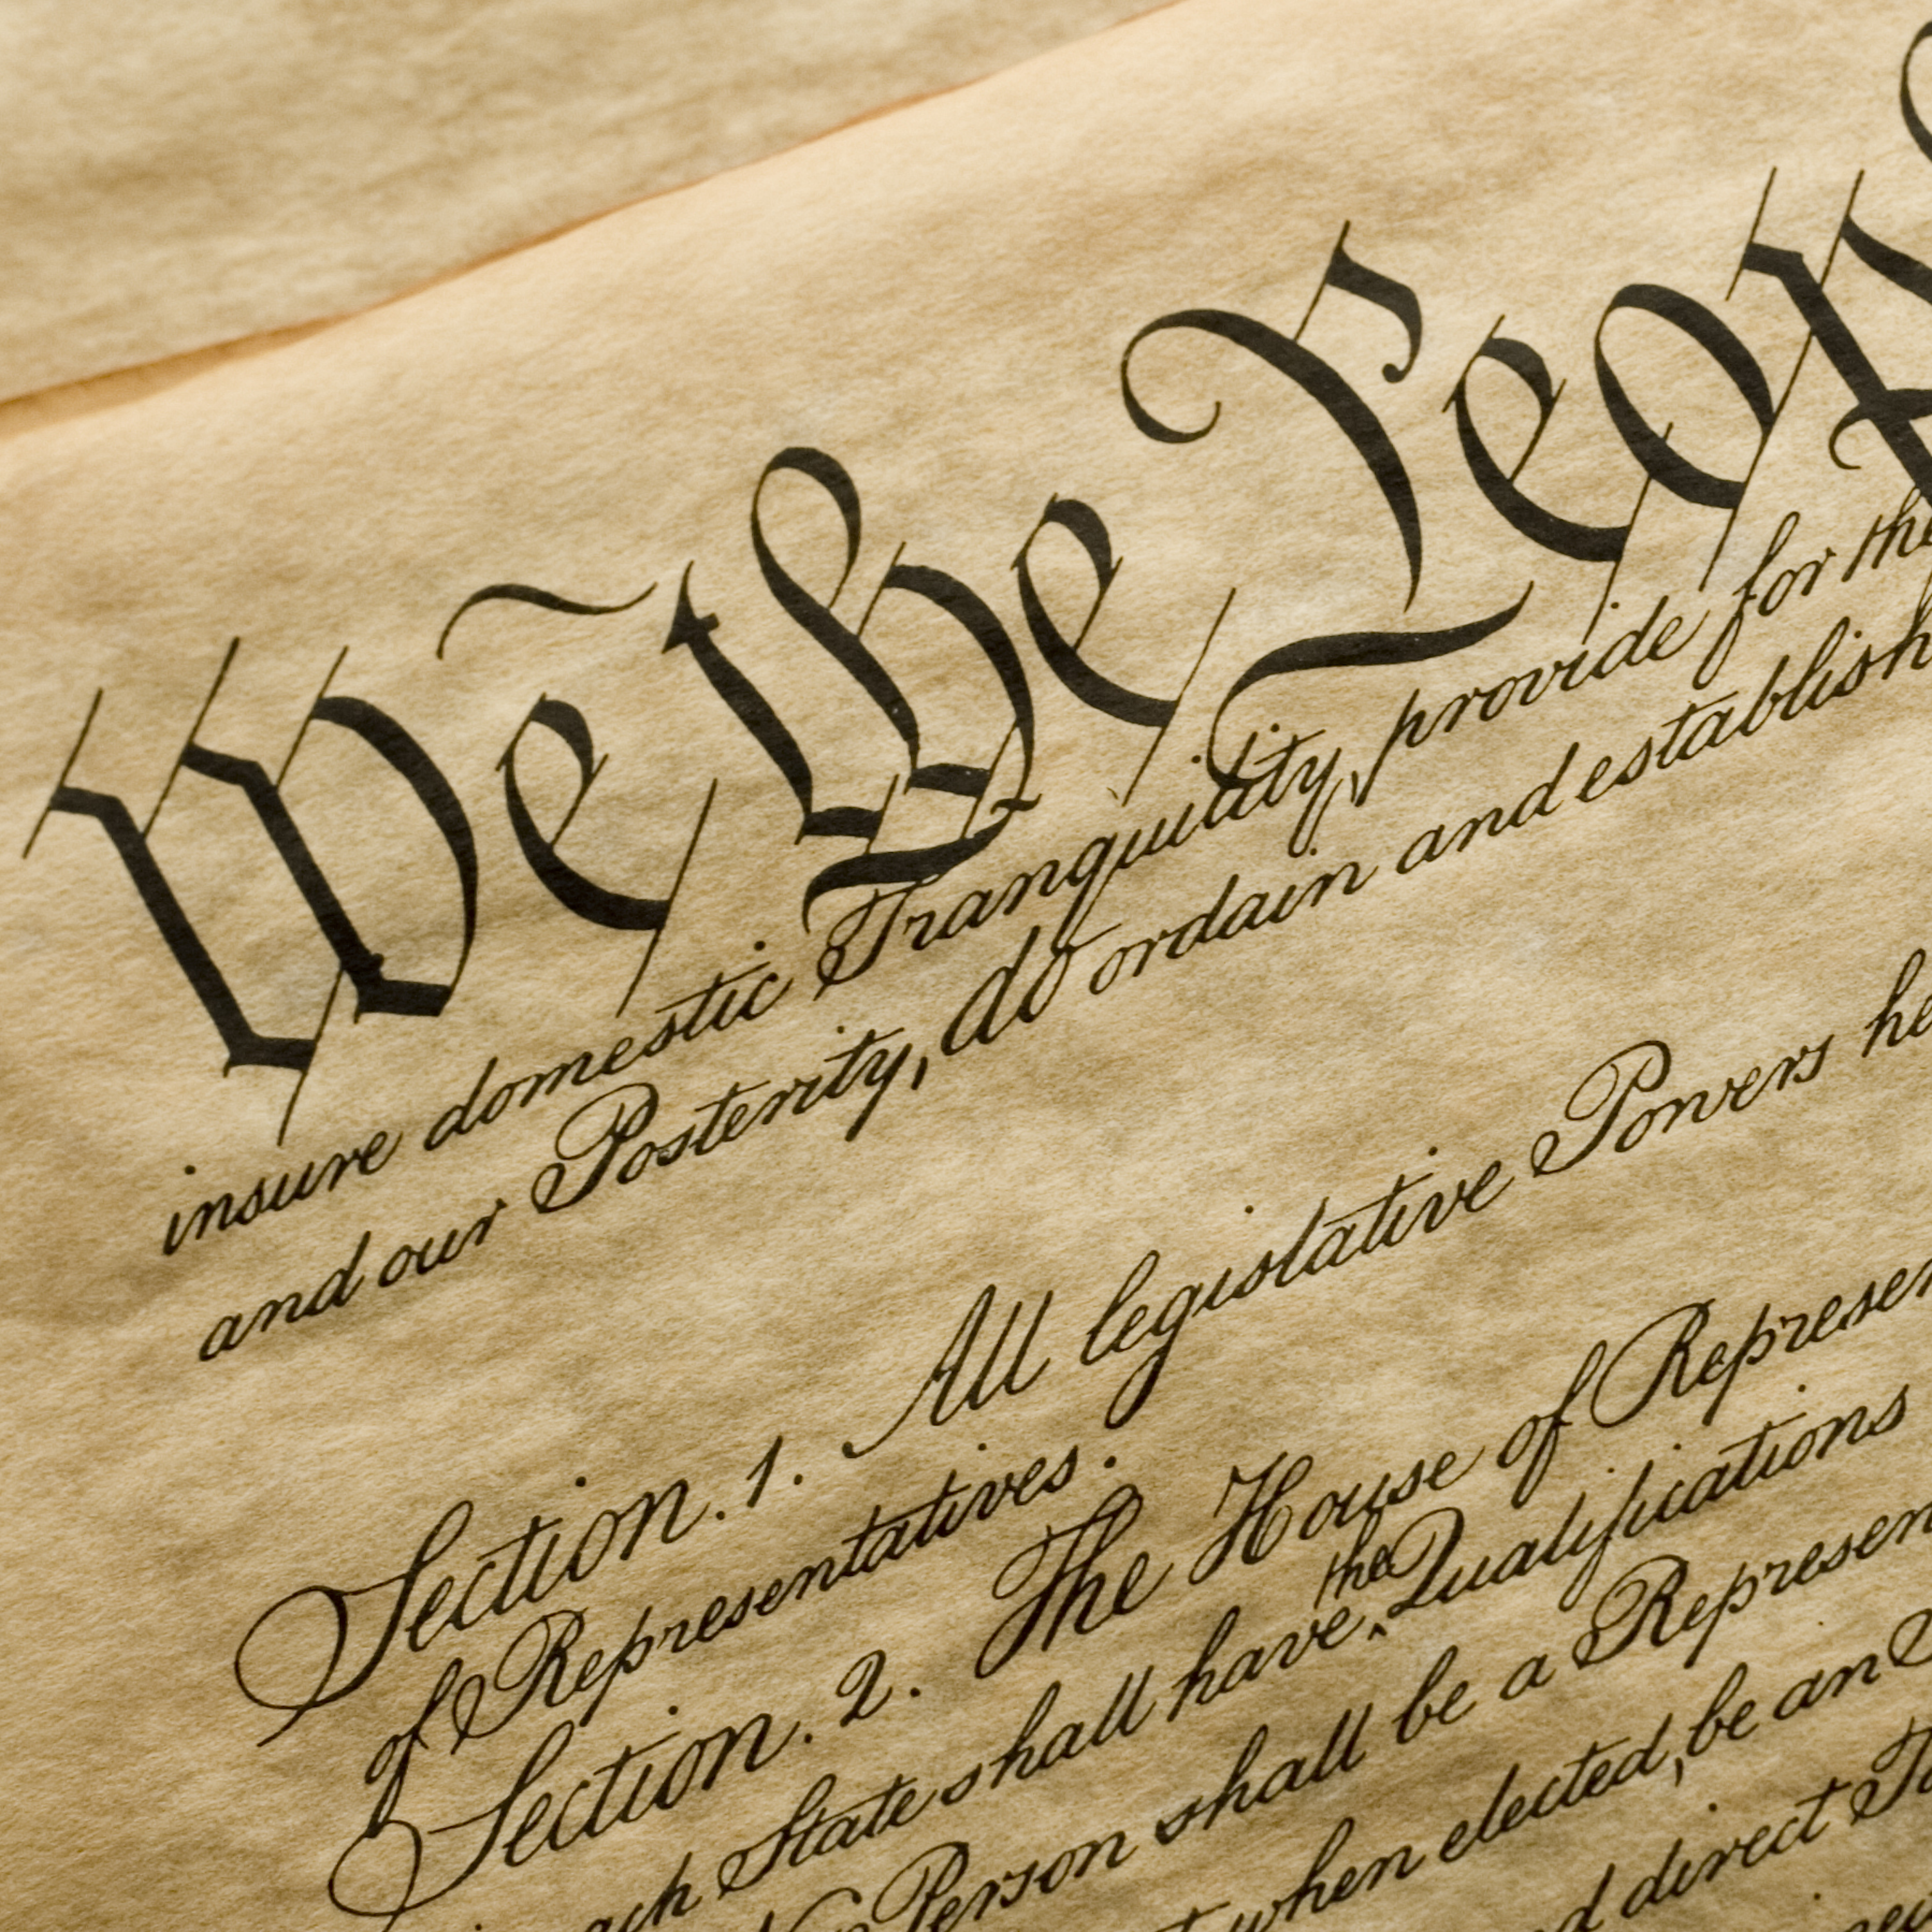 We the Peop
insure domestic Tranquility, provide for the
and our Posterity, do ordain and establish
Section. 1. All legislative Powers he
of Representatives.
Section. 2. The House of Represen
the
ach State shall have ‸ Qualifications
No Person shall be a Represen
when elected, be an
d direct